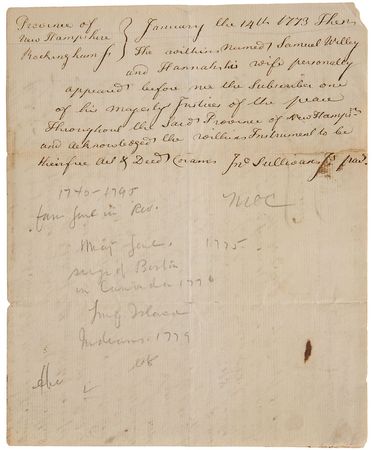 Province of
New Hampshire
Rockingham Ss
January the 14th 1773 Then
The within Named Samuel Willey
and Hannah his wife personaly
appeared before me the Subscriber one
of his majesty Justices of the peace
Throughout the Said Province of New Hampr
and acknowledged the within Instrument to be
their free Act & Deed Coram Jno Sullivan Jus pac.
1740-1795
Genl in Rev.
MOC
Maj Genl. 1775
siege of Boston
in Canada 1776
Long Island
Indians. 1779